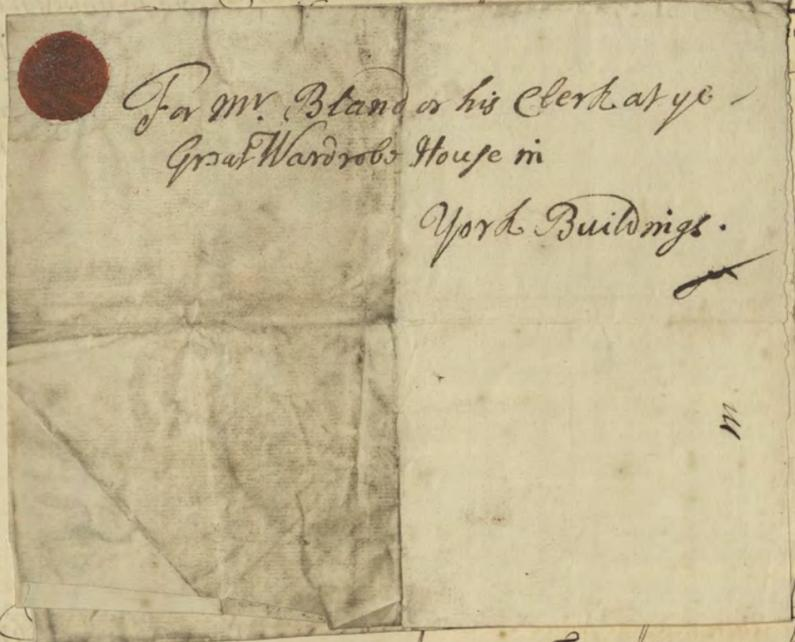 For Mr. Bland or his Clerk at ye
Great Wardrobe House in
York Buildings.